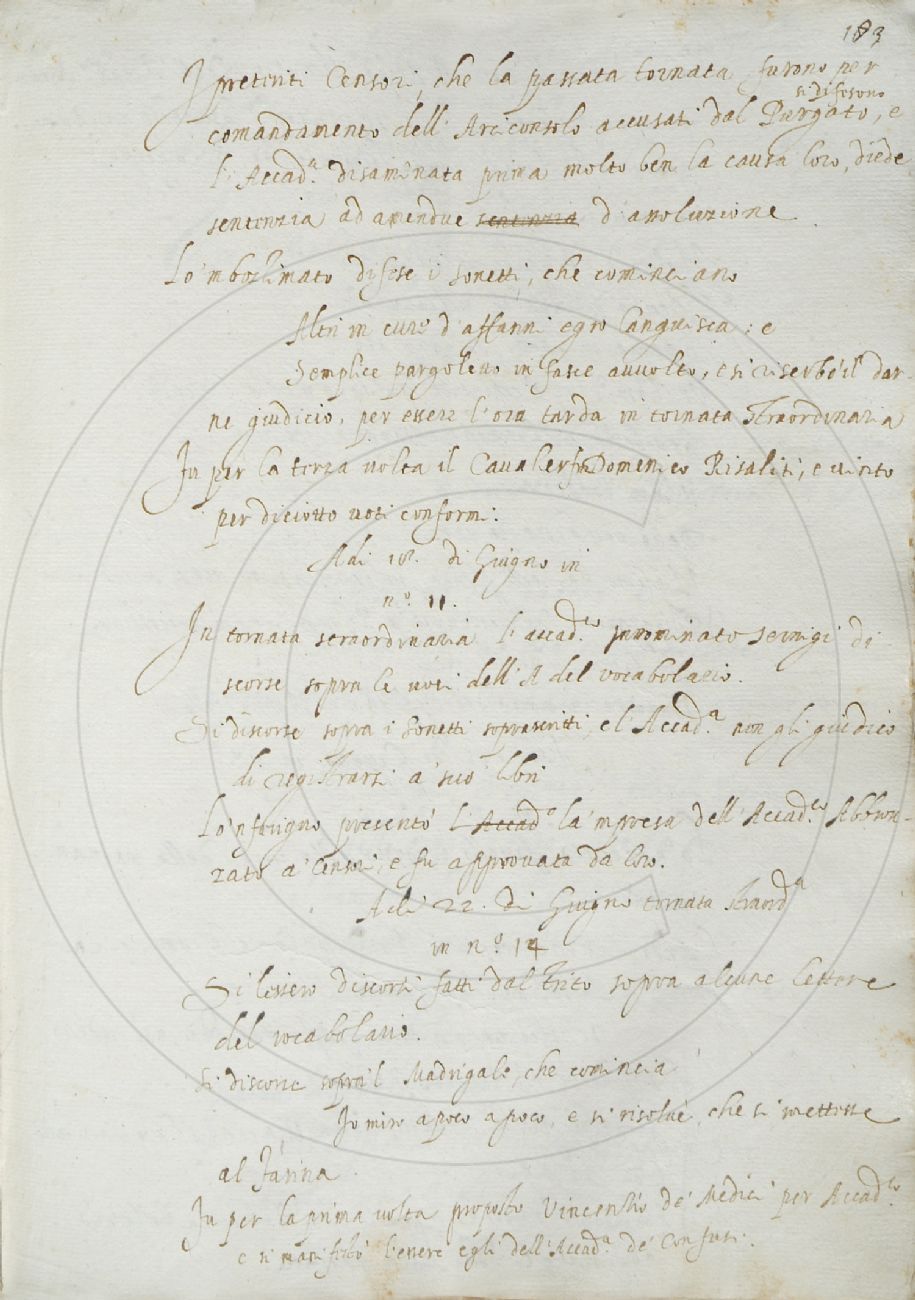 183
I preteriti Censori, che la passata tornata, furono per
si difesono
comandamento dell'Arciconsolo accusati dal Purgato, e
l'Accad.ª disaminata prima molto ben la causa loro, diede
sentenzia ad amendue sentenzia d'assoluzione
Lo 'mbolsimato difese i sonetti, che cominciano
Altri in cure d'affanni egro languisca; e
Semplice pargoletto in fasce avvolto, e si riserbò il dar-
ne giudicio, per essere l'ora tarda in tornata straordinaria
Fu per la terza volta il Cavalier fra Domenico Risaliti, e vinto
per diciotto voti conformi.
Adi 18. di Giugno in
n.º 11.
In tornata straordinaria l'accad.co innominato Sernigi di
scorse sopra le voci dell'A del vocabolario.
Si discorse sopra i sonetti soprascritti, e l'Accad.ª non gli giudicò
di registrarsi a' suo' libri
Lo 'nferigno presentò l'Accad.e la 'mpresa dell'Accad.co Abbron-
zato a' Censori, e fu approvata da loro.
Adi 22. di Giugno tornata straord.ª
in n.º 14
Si lessero discorsi fatti dal Trito sopra alcune lettere
del vocabolario.
Si discorse sopra 'l Madrigale, che comincia
Io miro a poco a poco, e si risolvè, che si mettesse
al Farina.
Fu per la prima volta proposto Vincenzio de' Medici per Accad.co
e si manifestò l'essere egli dell'Accad.ª de' Confusi.